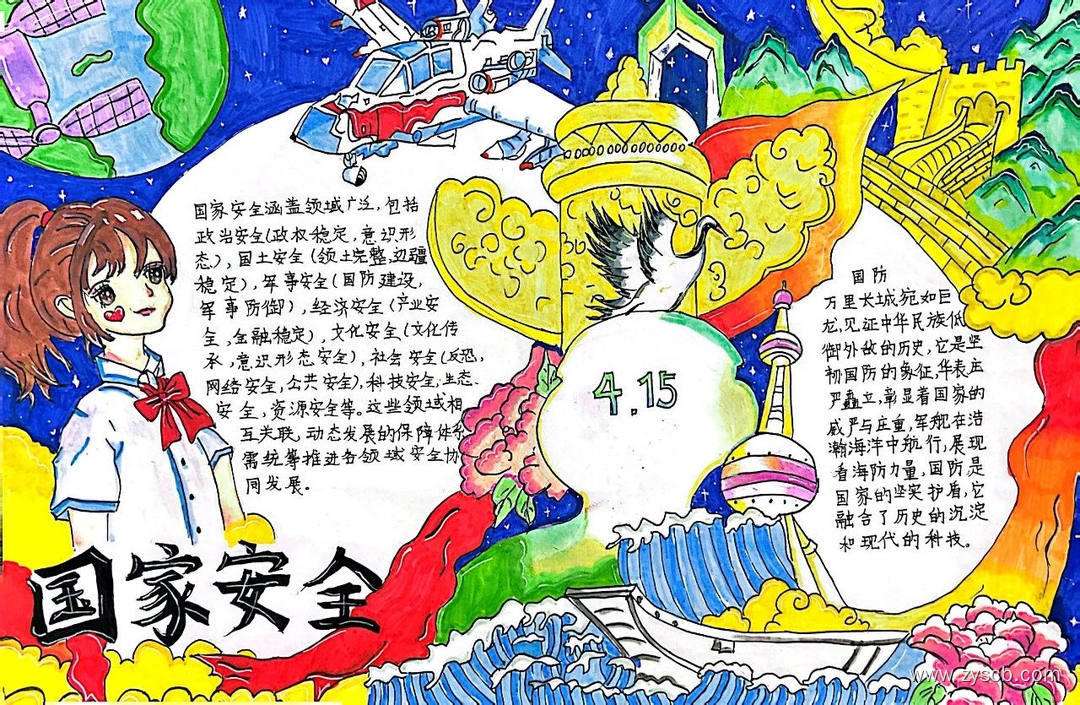 国家安全涵盖领域广泛，包括
政治安全（政权稳定，意识形
态），国土安全（领土完整，边疆
稳定），军事安全（国防建设，
军事防御），经济安全（产业安
全，金融稳定），文化安全（文化传
承，意识形态安全），社会安全（反恐，
网络安全，公共安全），科技安全，生态、
安全，资源安全等。这些领域相
互关联，动态发展的保障体系
需统筹推进各领域安全协
同发展。
国家安全
4.15
国防
万里长城宛如巨
龙，见证中华民族抵
御外敌的历史，它是坚
韧国防的象征，华表庄
严矗立，彰显着国家的
威严与庄重，军舰在浩
瀚海洋中航行，展现
着海防力量，国防是
国家的坚实护盾，它
融合了历史的沉淀
和现代的科技。
www.zyscb.com